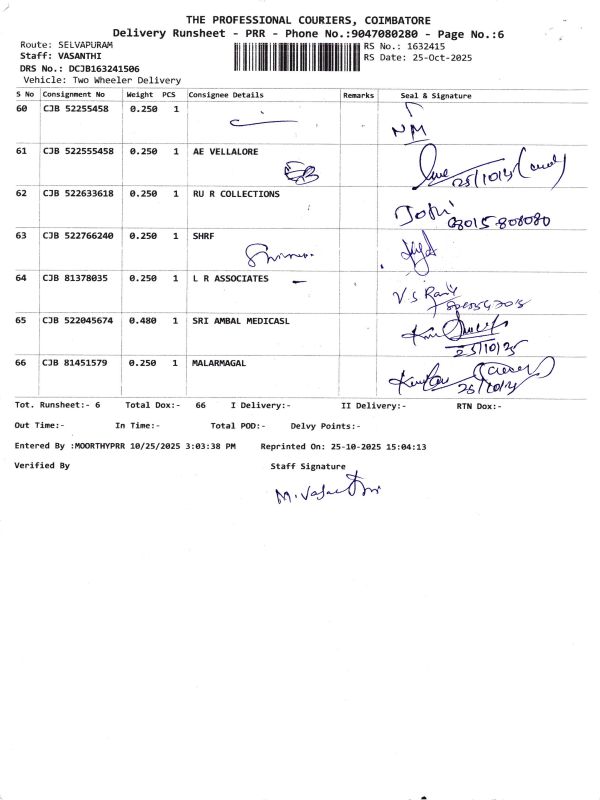 THE PROFESSIONAL COURIERS, COIMBATORE
Delivery Runsheet - PRR - Phone No.:9047080280 - Page No.:6
Route: SELVAPURAM
RS No.: 1632415
Staff: VASANTHI
RS Date: 25-Oct-2025
DRS No.: DCJB163241506
Vehicle: Two Wheeler Delivery
S No Consignment No Weight PCS Consignee Details Remarks Seal & Signature
60 CJB 52255458 0.250 1
NM
61 CJB 522555458 0.250 1 AE VELLALORE
25/10/25
62 CJB 522633618 0.250 1 RU R COLLECTIONS
63 CJB 522766240 0.250 1 SHRF
64 CJB 81378035 0.250 1 L R ASSOCIATES
V S
65 CJB 522045674 0.480 1 SRI AMBAL MEDICASL
25/10/25
66 CJB 81451579 0.250 1 MALARMAGAL
25/10/25
Tot. Runsheet:- 6 Total Dox:- 66 I Delivery:- II Delivery:- RTN Dox:-
Out Time:- In Time:- Total POD:- Delvy Points:-
Entered By :MOORTHYPRR 10/25/2025 3:03:38 PM Reprinted On: 25-10-2025 15:04:13
Verified By Staff Signature